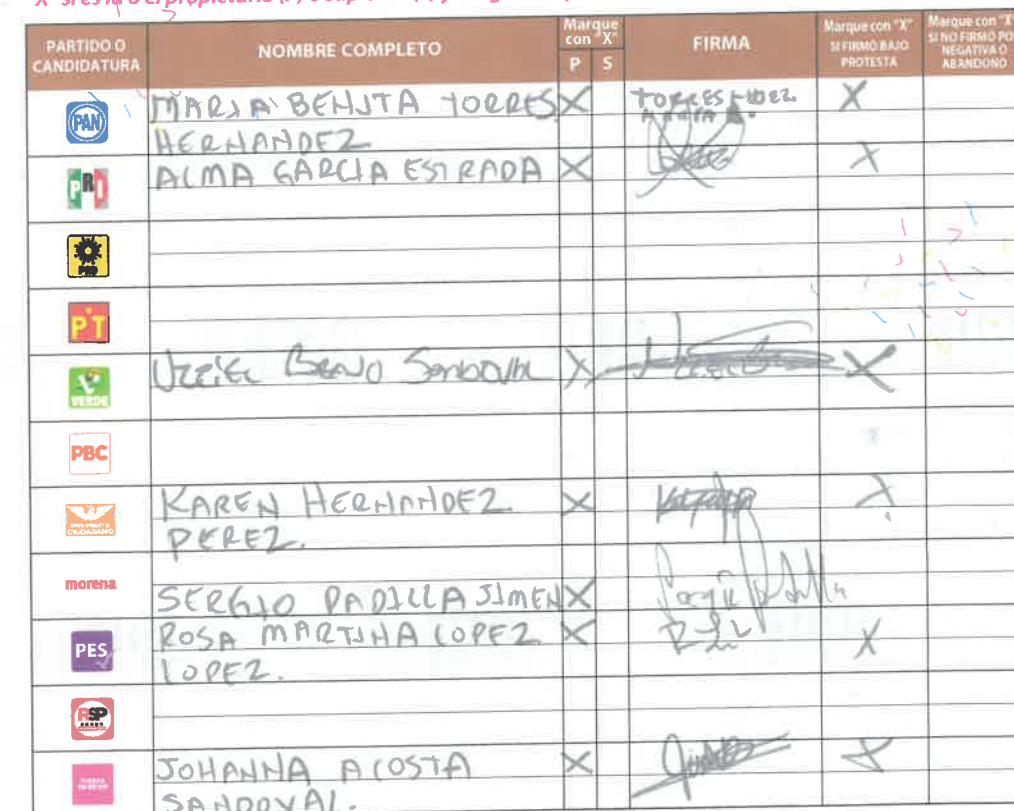 PARTIDO O CANDIDATURA NOMBRE COMPLETO Marque con "X" P S FIRMA Marque con "X" SI FIRMÓ BAJO PROTESTA Marque con "X" SI NO FIRMÓ POR NEGATIVA O ABANDONO
PAN MARIA BENITA TORRES X TORRES HDEZ X
HERNANDEZ MARIA B.
PRI ALMA GARCIA ESTRADA X X
PRD
PT
VERDE UZZIEL BRAVO SANDOVAL X X
PBC
MOVIMIENTO CIUDADANO KAREN HERNANDEZ X X
PEREZ.
morena
SERGIO PADILLA JIMEN X Sergio Padilla
PES ROSA MARTINA LOPEZ X X
LOPEZ.
RSP
JOHANNA ACOSTA X X
SANDOVAL.